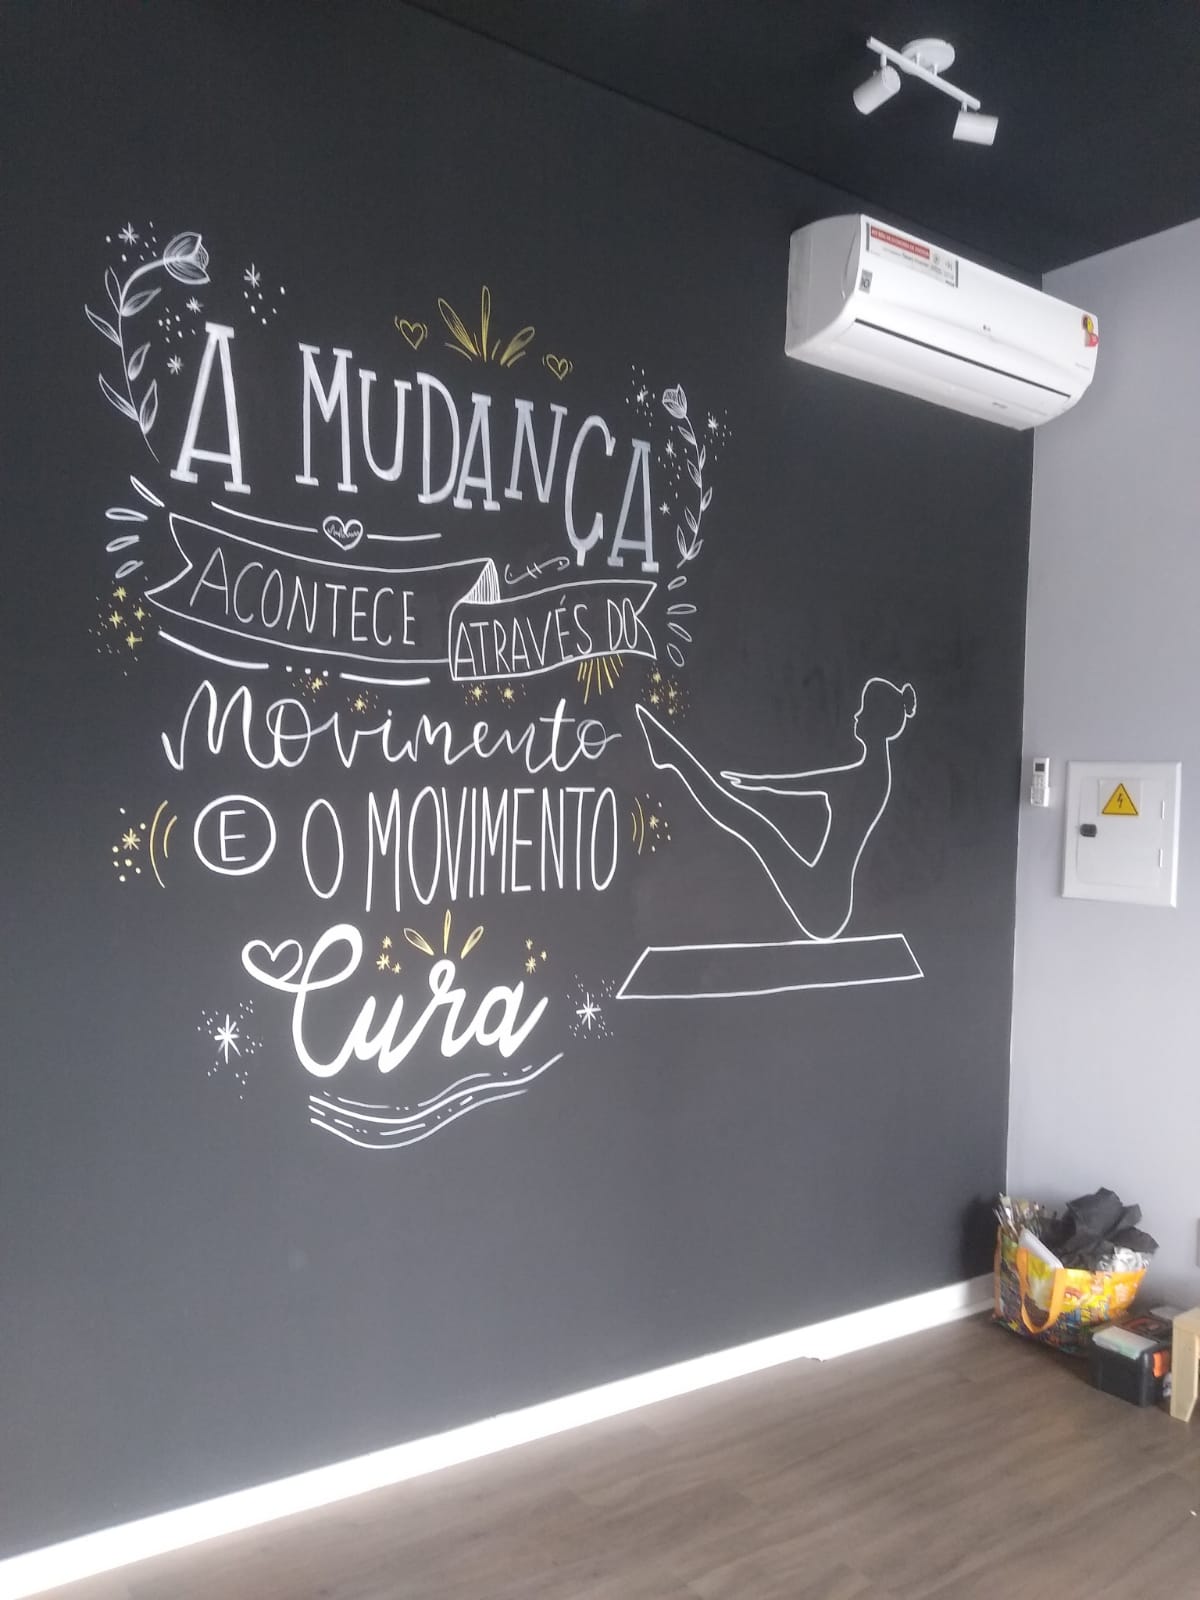 A MUDANÇA
ACONTECE ATRAVÉS DO
Movimento
E O MOVIMENTO
Cura
LG